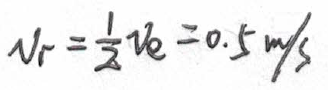 Vr = 1/2 Ve = 0.5 m/s